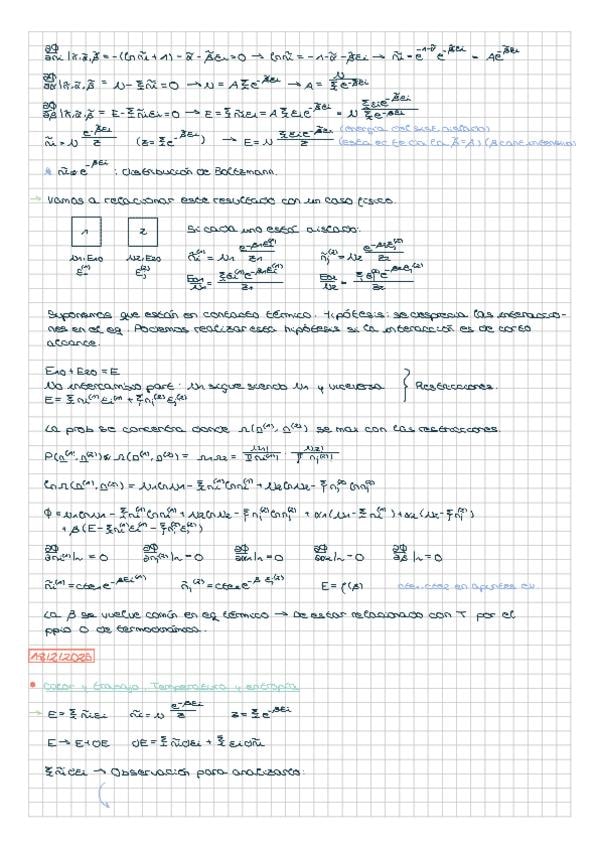 ∂Φ/∂ni |ñ,α̃,β̃ = -(ln ñi + 1) - α̃ - β̃εi = 0 → ln ñi = -1 - α̃ - β̃εi → ñi = e^(-1-α̃) e^(-β̃εi) = A e^(-β̃εi)
∂Φ/∂α |ñ,α̃,β̃ = N - Σ ñi = 0 → N = A Σ e^(-β̃εi) → A = N / Σ e^(-β̃εi)
∂Φ/∂β |ñ,α̃,β̃ = E - Σ ñiεi = 0 → E = Σ ñiεi = A Σ εi e^(-β̃εi) = N Σ εi e^(-β̃εi) / Σ e^(-β̃εi)
ñi = N e^(-βεi) / z (z = Σ e^(-βεi)) → E = N Σ εi e^(-βεi) / z (energía del sist. aislado)
ñi ∝ e^(-βεi) : distribución de Boltzmann.
→ Vamos a relacionar este resultado con un caso físico.
1 2 Si cada uno está aislado:
N1, E10 N2, E20 ñi^(1) = N1 e^(-β1εi^(1)) / z1 ñj^(2) = N2 e^(-β2εj^(2)) / z2
εi^(1) εj^(2) E01/N1 = Σ εi^(1) e^(-β1εi^(1)) / z1 E02/N2 = Σ εj^(2) e^(-β2εj^(2)) / z2
Suponemos que están en contacto térmico. Hipótesis: se desprecia las interaccio-
nes en el eq. Podemos realizar esta hipótesis si la interacción es de corto
alcance.
E10 + E20 = E
No intercambio part: N1 sigue siendo N1 y viceversa } Restricciones.
E = Σ ni^(1) εi^(1) + Σ nj^(2) εj^(2)
La prob se concentra donde Ω(n^(1), n^(2)) se max con las restricciones.
P(n^(1), n^(2)) ∝ Ω(n^(1), n^(2)) = Ω1Ω2 = N1! / Π ni^(1)! · N2! / Π nj^(2)!
ln Ω(n^(1), n^(2)) = N1 ln N1 - Σ ni^(1) ln ni^(1) + N2 ln N2 - Σ nj^(2) ln nj^(2)
Φ = N1 ln N1 - Σ ni^(1) ln ni^(1) + N2 ln N2 - Σ nj^(2) ln nj^(2) + α1 (N1 - Σ ni^(1)) + α2 (N2 - Σ nj^(2))
+ β (E - Σ ni^(1) εi^(1) - Σ nj^(2) εj^(2))
∂Φ/∂ni^(1) |~ = 0 ∂Φ/∂nj^(2) |~ = 0 ∂Φ/∂α1 |~ = 0 ∂Φ/∂α2 |~ = 0 ∂Φ/∂β |~ = 0
ñi^(1) = cte1 e^(-βεi^(1)) ñj^(2) = cte2 e^(-βεj^(2)) E = f(β) cte1, cte2 en apuntes cv
La β se vuelve común en eq térmico → Debe estar relacionado con T por el
ppio 0 de termodinámica.
18/2/2025
Calor y trabajo. Temperatura y entropía
→ E = Σ ñiεi ñi = N e^(-βεi) / z z = Σ e^(-βεi)
E → E + dE dE = Σ ñi dεi + Σ εi dñi
Σ ñi dεi → Observación para analizarlo: